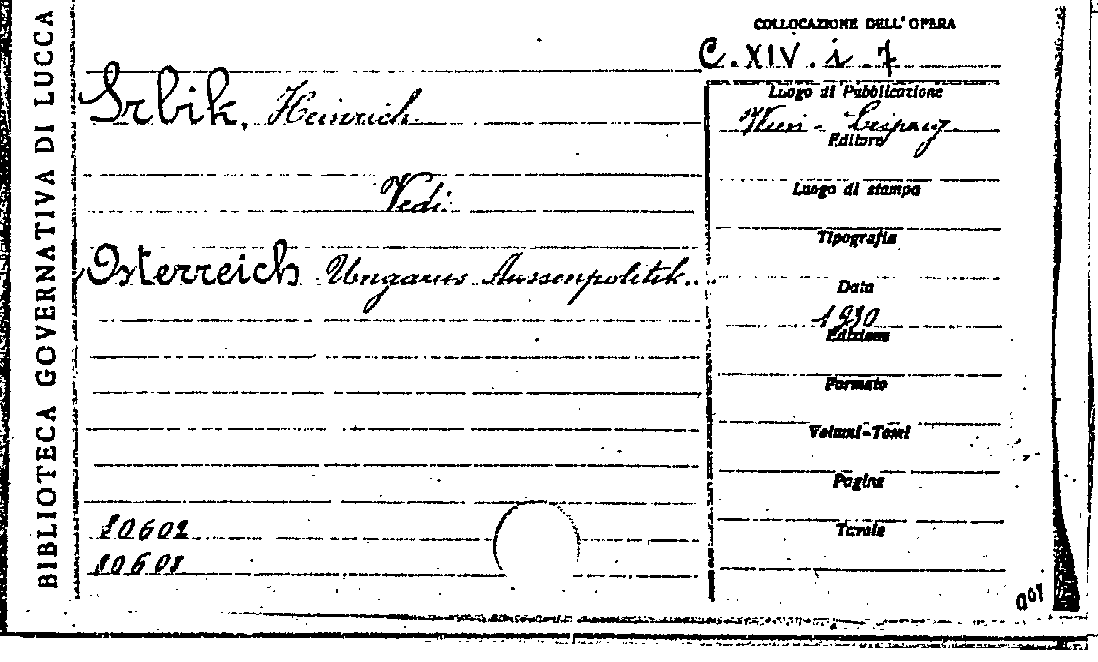 BIBLIOTECA GOVERNATIVA DI LUCCA
COLLOCAZIONE DELL'OPERA
C.XIV.i.7
Srbik, Heinrich
Vedi:
Österreich Ungarns Aussenpolitik...
80602
Luogo di Pubblicazione
Wien - Leipzig
Editore
Luogo di stampa
Tipografia
Data
1930
Edizione
Formato
Volumi-Tomi
Pagine
Tavole